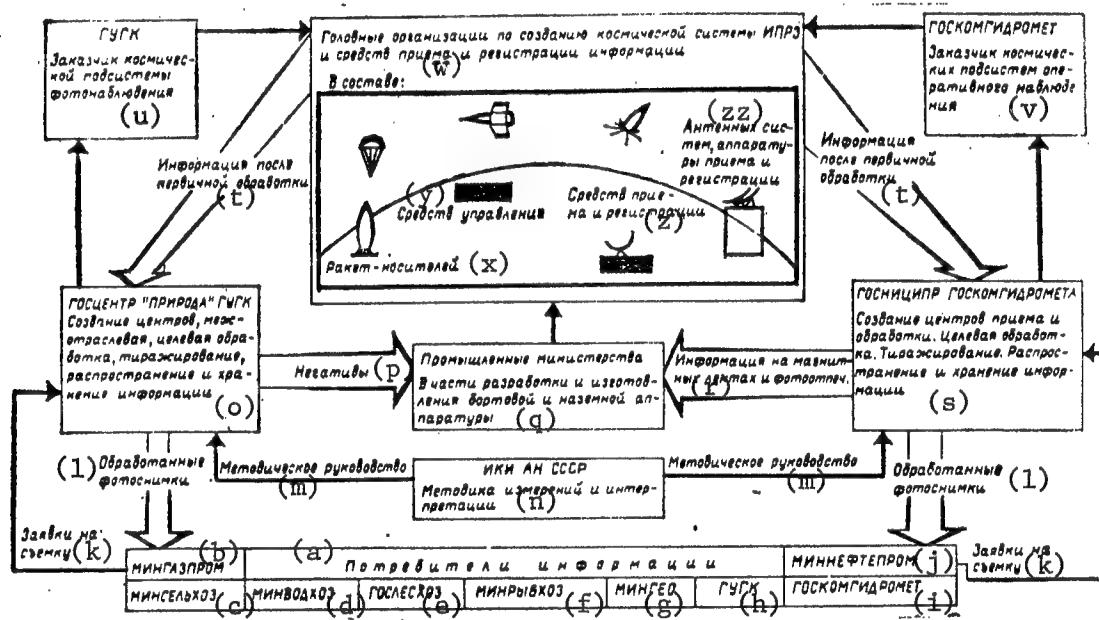 ГУГК
Заказчик космичес-
кой подсистемы
фотонаблюдения
(u)
Головные организации по созданию космической системы ИПРЗ
и средств приема и регистрации информации
(w)
В составе:
ГОСКОМГИДРОМЕТ
Заказчик космичес-
ких подсистем опе-
ративного наблюде
ния
(v)
(zz)
Антенных сис-
тем, аппарату-
ры приема и
регистрации
(y)
Средств управления
Средств прие-
ма и регистрации
(z)
Ракет-носителей (x)
Информация после
первичной обработки
(t)
Информация
после первичной
обработки
(t)
ГОСЦЕНТР "ПРИРОДА" ГУГК
Создание центров, меж-
отраслевая, целевая обра-
ботка, тиражирование,
распространение и хра-
нение информации
(o)
Негативы (p)
Промышленные министерства
В части разработки и изготов-
ления бортовой и наземной ап-
паратуры
(q)
Информация на магнит-
ных лентах и фотоотпеч.
(r)
ГОСНИЦИПР ГОСКОМГИДРОМЕТА
Создание центров приема и
обработки. Целевая обработ-
ка. Тиражирование. Распрос-
транение и хранение инфор-
мации
(s)
(l) Обработанные
фотоснимки
Методическое руководство
(m)
ИКИ АН СССР
Методика измерений и интер-
претации
(n)
Методическое руководство
(m)
Обработанные
фотоснимки
(l)
Заявки на
съемку (k)
МИНГАЗПРОМ (b)
(a)
Потребители информации
МИННЕФТЕПРОМ (j)
Заявки на
съемку (k)
МИНСЕЛЬХОЗ (c) МИНВОДХОЗ (d) ГОСЛЕСХОЗ (e) МИНРЫБХОЗ (f) МИНГЕО (g) ГУГК (h) ГОСКОМГИДРОМЕТ (i)